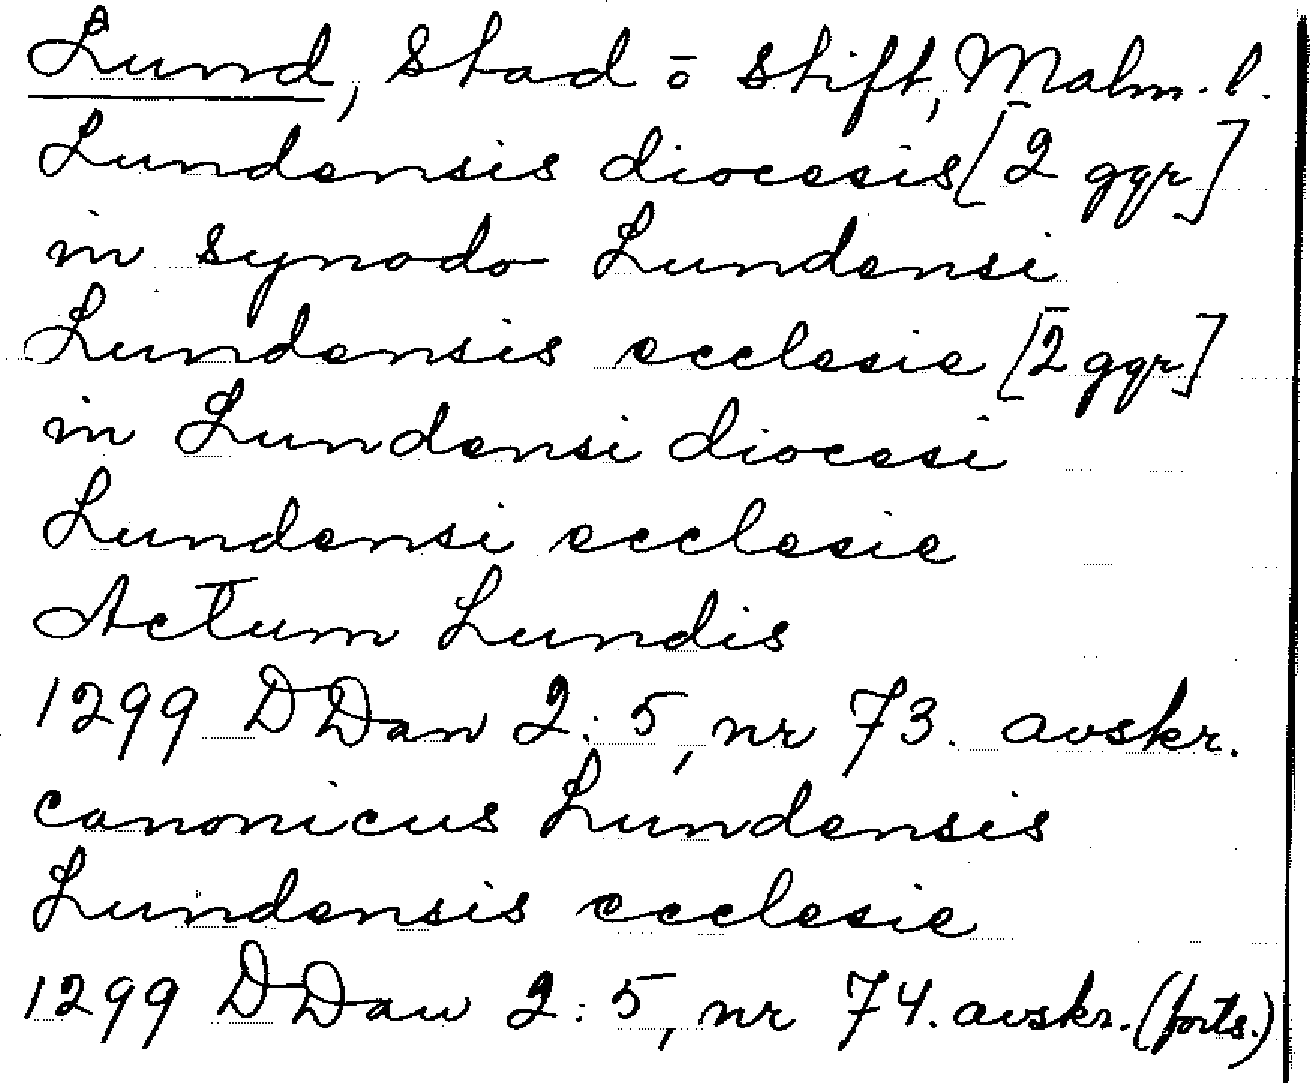 Lund, stad ō stift, Malm. l.
Lundensis diocesis [2 ggr]
in synodo Lundensi
Lundensis ecclesie [2 ggr]
in Lundensi diocesi
Lundensi ecclesie
Actum Lundis
1299 DDan 2:5, nr 73. avskr.
canonicus Lundensis
Lundensis ecclesie
1299 DDan 2:5, nr 74. avskr. (forts.)